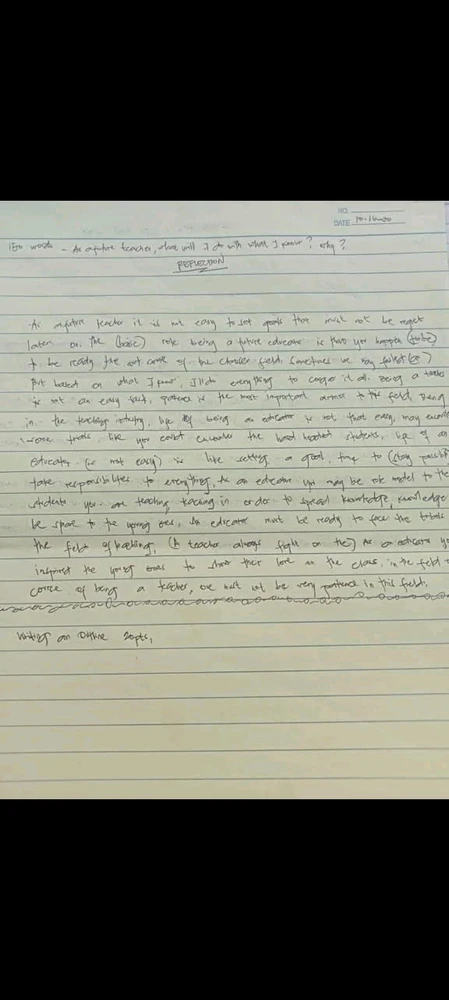 NO.
DATE
150 words - As a future teacher, what will I do with what I know? why?
REFLECTION
As a future teacher it is not easy to set goals that must not be regret
later on. The (basic) role being a future educator is that you (to be)
to be ready the out come of the chosen field, sometimes we may
But based on what I know, I'll do everything to conquer it all. Being a
is not an easy task, patience is the most important in this field. Being
in the teaching industry, life of being an educator is not that easy, may
trials, like you the hard headed students, life of an
educator (is not easy) is like setting a goal, time to (stay
take responsibilities to everything. As an educator you may be role model to the
students you are teaching, teaching in order to spread knowledge, knowledge
be to the young ones. An educator must be ready to face the
the field of teaching, (A teacher always fight on the) As an educator
inspired the young ones to show their love in the class, in the field
of being a teacher, one must not be very patience in this field.
Writing an Outline 20pts,